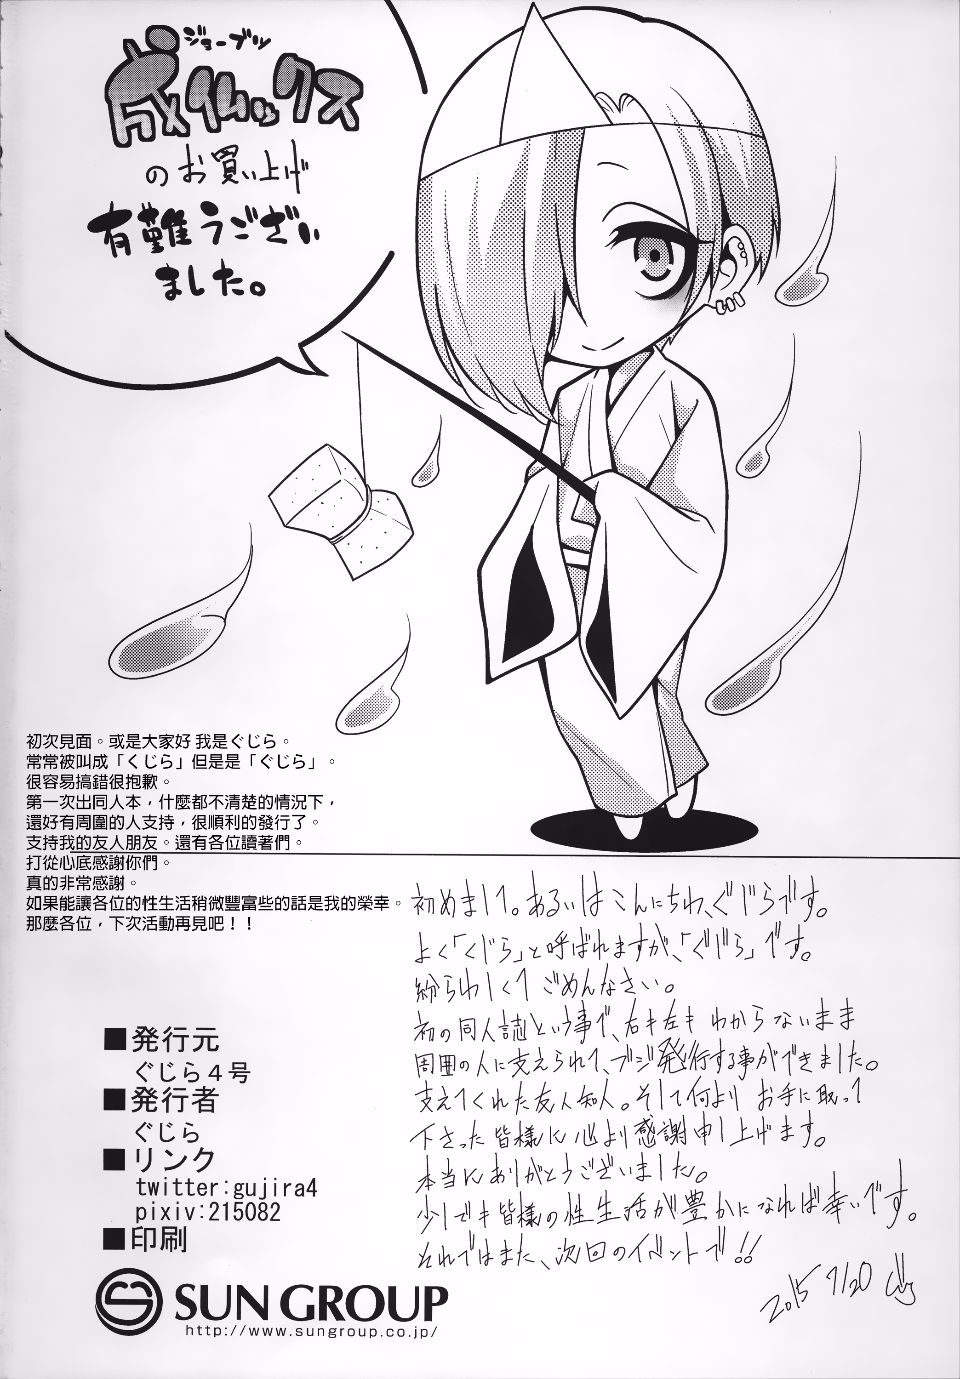 ジョーブツ
成仏ックス
のお買い上げ
有難うござい
ました。
初次見面。或是大家好 我是ぐじら。
常常被叫成「くじら」但是是「ぐじら」。
很容易搞錯很抱歉。
第一次出同人本，什麼都不清楚的情況下，
還好有周圍的人支持，很順利的發行了。
支持我的友人朋友。還有各位讀著們。
打從心底感謝你們。
真的非常感謝。
如果能讓各位的性生活稍微豐富些的話是我的榮幸。
那麼各位，下次活動再見吧！！
初めまして。あるいはこんにちわ、ぐじらです。
よく「くじら」と呼ばれますが、「ぐじら」です。
紛らわしくてごめんなさい。
初の同人誌という事で、右も左もわからないまま
周囲の人に支えられて、ブジ発行する事ができました。
支えてくれた友人知人。そして何よりお手に取って
下さった皆様に心より感謝申し上げます。
本当にありがとうございました。
少しでも皆様の性生活が豊かになれば幸いです。
それではまた、次回のイベントで!!
2015 7/20
■発行元
ぐじら4号
■発行者
ぐじら
■リンク
twitter:gujira4
pixiv:215082
■印刷
SUN GROUP
http://www.sungroup.co.jp/